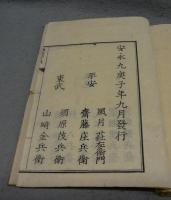 安永九庚子年九月發行
平安
風月莊左衛門
齋藤庄兵衛
東武
須原茂兵衛
山崎金兵衛